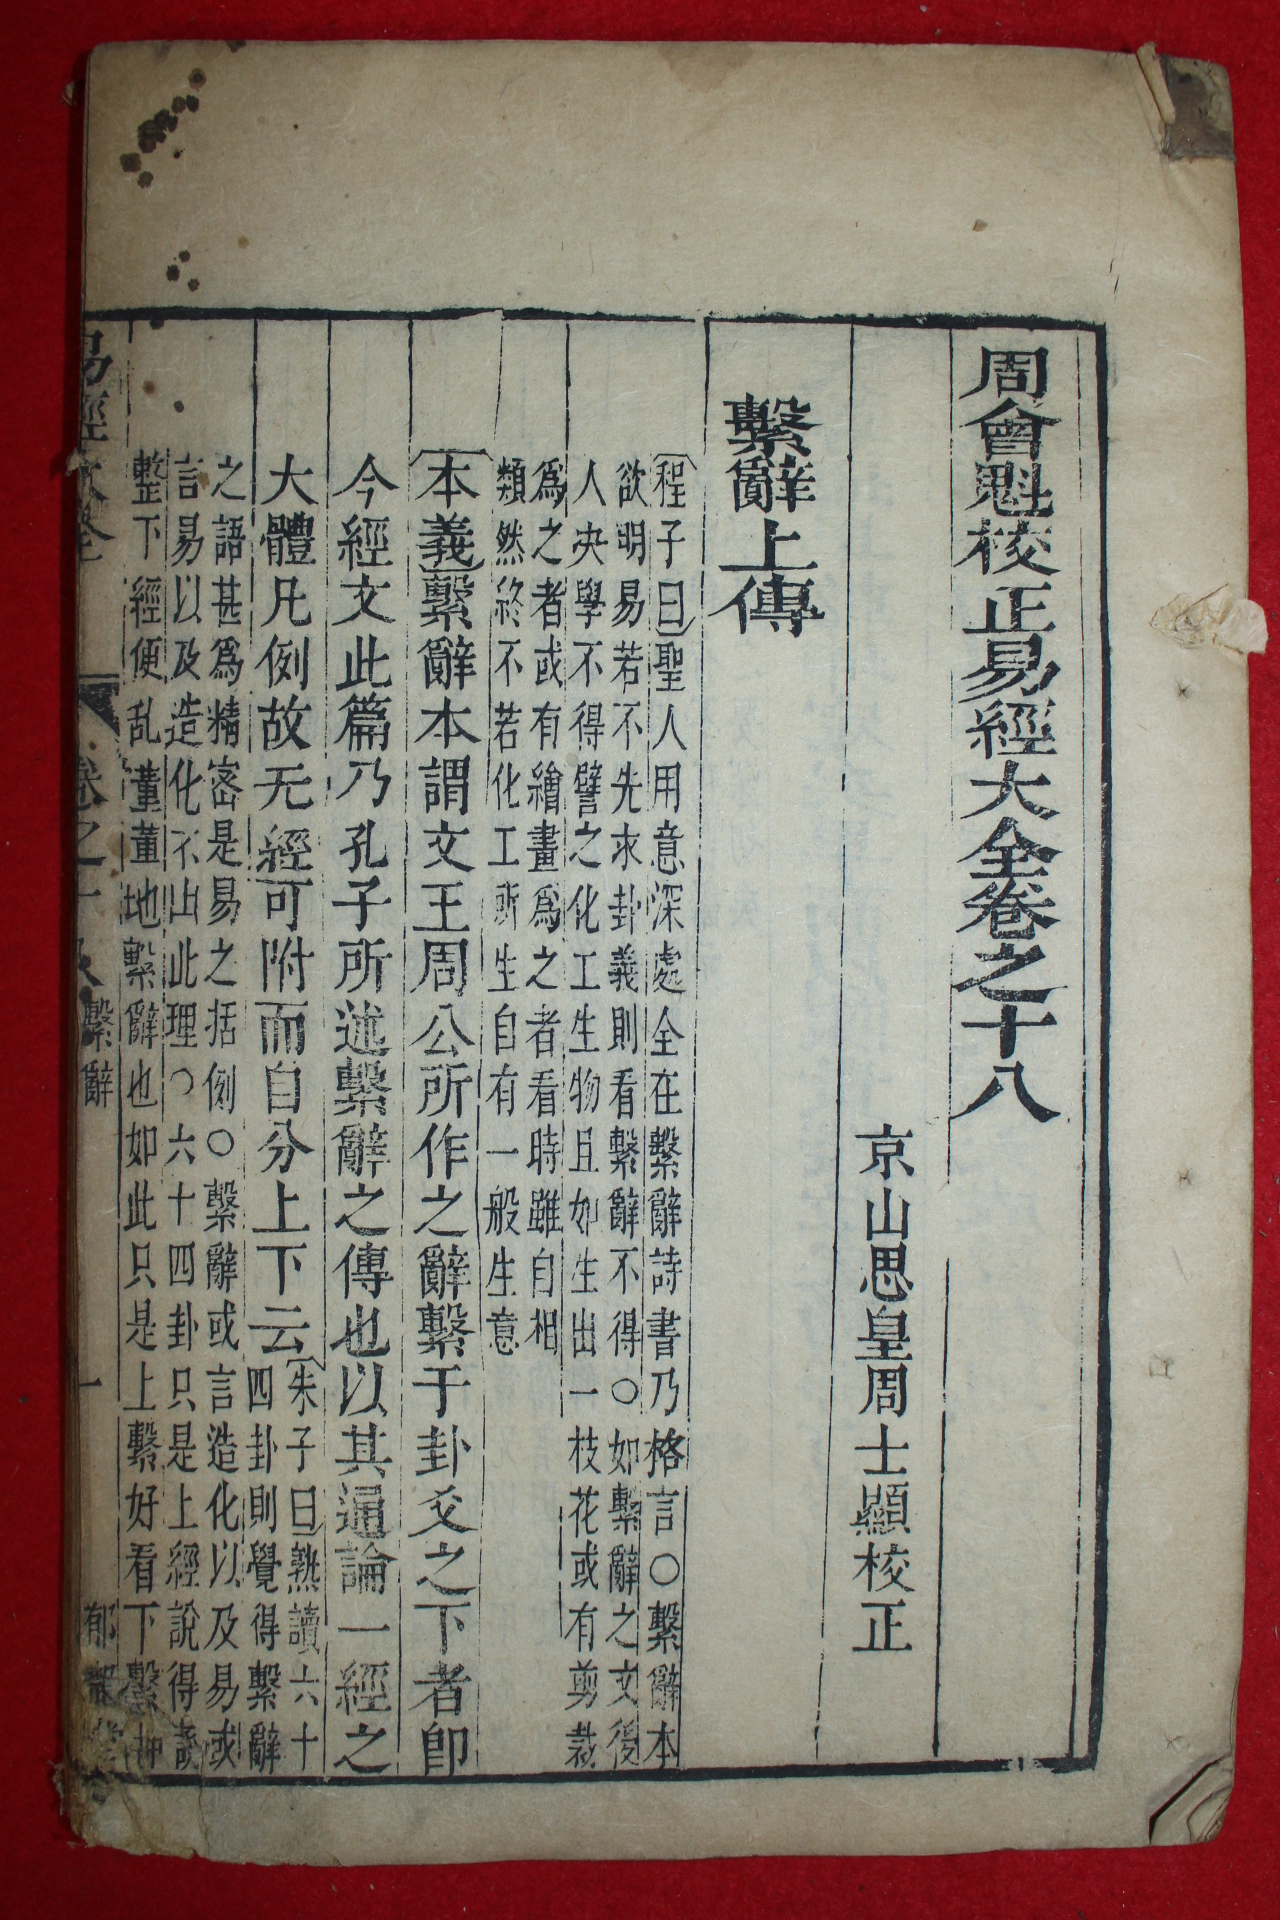 周會魁校正易經大全卷之十八
京山思皇周士顯校正
繫辭上傳
程子曰聖人用意深處全在繫辭詩書乃格言○繫辭本
欲明易若不先求卦義則看繫辭不得○如繫辭之文後
人決學不得譬之化工生物且如生出一枝花或有剪裁
爲之者或有繪畫爲之者看時雖自相
類然終不若化工所生自有一般生意
本義繫辭本謂文王周公所作之辭繫于卦爻之下者卽
今經文此篇乃孔子所述繫辭之傳也以其通論一經之
大體凡例故无經可附而自分上下云
朱子曰熟讀六十
四卦則覺得繫辭
之語甚爲精密是易之括例○繫辭或言造化以及易或
言易以及造化不出此理○六十四卦只是上經說得齊
整下經便乱董董地繫辭也如此只是上繫好看下繫
易經大全
卷之十八
繫辭
一
郁郁堂